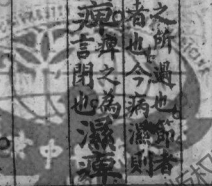 之所過也節者
者也今病濕則
痺痺之為
言閉也濕痺